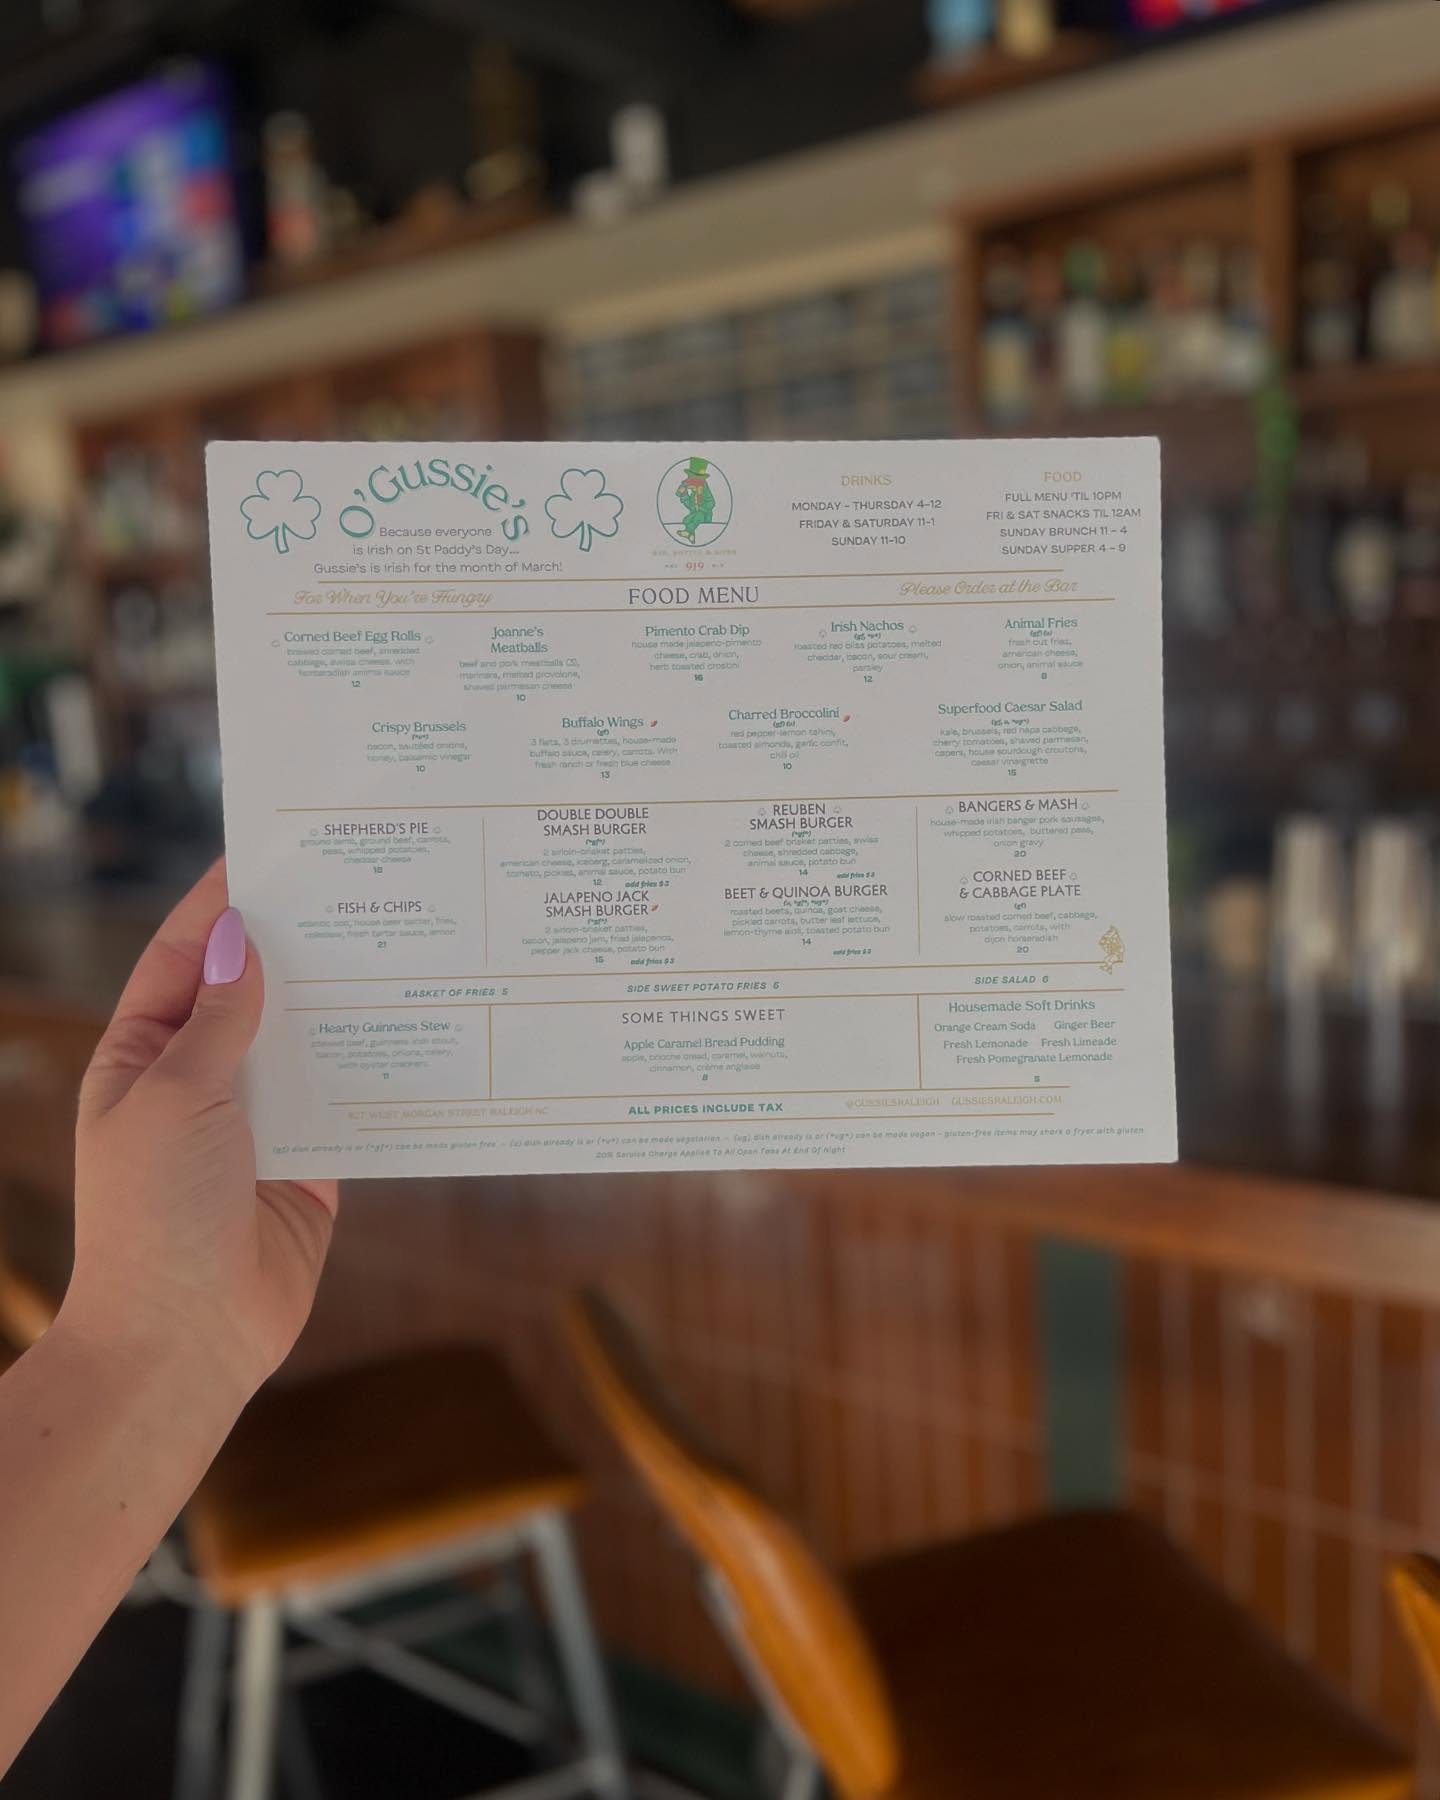 O'Gussie's
Because everyone
is Irish on St Paddy's Day...
Gussie's is Irish for the month of March!
919
DRINKS
MONDAY - THURSDAY 4-12
FRIDAY & SATURDAY 11-1
SUNDAY 11-10
FOOD
FULL MENU 'TIL 10PM
FRI & SAT SNACKS TIL 12AM
SUNDAY BRUNCH 11 - 4
SUNDAY SUPPER 4 - 9
For When You're Hungry
FOOD MENU
Please Order at the Bar
Corned Beef Egg Rolls
braised corned beef, shredded
cabbage, swiss cheese, with
horseradish animal sauce
12
Joanne's
Meatballs
beef and pork meatballs (3),
marinara, melted provolone,
shaved parmesan cheese
10
Pimento Crab Dip
house made jalapeno-pimento
cheese, crab, onion,
herb toasted crostini
16
Irish Nachos
(gf, *v*)
roasted red bliss potatoes, melted
cheddar, bacon, sour cream,
parsley
12
Animal Fries
(gf) (v)
fresh cut fries,
american cheese,
onion, animal sauce
8
Crispy Brussels
(*v*)
bacon, sautéed onions,
honey, balsamic vinegar
10
Buffalo Wings
(gf)
3 flats, 3 drumettes, house-made
buffalo sauce, celery, carrots. With
fresh ranch or fresh blue cheese
13
Charred Broccolini
(gf) (v)
red pepper-lemon tahini,
toasted almonds, garlic confit,
chili oil
10
Superfood Caesar Salad
kale, brussels, red napa cabbage,
cherry tomatoes, shaved parmesan,
capers, house sourdough croutons,
caesar vinaigrette
15
SHEPHERD'S PIE
ground lamb, ground beef, carrots,
peas, whipped potatoes,
cheddar cheese
18
FISH & CHIPS
atlantic cod, house beer batter, fries,
coleslaw, fresh tartar sauce, lemon
21
DOUBLE DOUBLE
SMASH BURGER
(*gf*)
2 sirloin-brisket patties,
american cheese, iceberg, caramelized onion,
tomato, pickles, animal sauce, potato bun
12 add fries $3
JALAPENO JACK
SMASH BURGER
(*gf*)
2 sirloin-brisket patties,
bacon, jalapeno jam, fried jalapenos,
pepper jack cheese, potato bun
15 add fries $3
REUBEN
SMASH BURGER
(*gf*)
2 corned beef brisket patties, swiss
cheese, shredded cabbage,
animal sauce, potato bun
14 add fries $3
BEET & QUINOA BURGER
(v, *gf*, *vg*)
roasted beets, quinoa, goat cheese,
pickled carrots, butter leaf lettuce,
lemon-thyme aioli, toasted potato bun
14
add fries $3
BANGERS & MASH
house-made irish banger pork sausages,
whipped potatoes, buttered peas,
onion gravy
20
CORNED BEEF
& CABBAGE PLATE
(gf)
slow roasted corned beef, cabbage,
potatoes, carrots, with
dijon horseradish
20
BASKET OF FRIES 5
SIDE SWEET POTATO FRIES 6
SIDE SALAD 6
Hearty Guinness Stew
stewed beef, guinness irish stout,
bacon, potatoes, onions, celery,
with oyster crackers
11
SOME THINGS SWEET
Apple Caramel Bread Pudding
apple, brioche bread, caramel, walnuts,
cinnamon, crème anglaise
8
Housemade Soft Drinks
Orange Cream Soda Ginger Beer
Fresh Lemonade Fresh Limeade
Fresh Pomegranate Lemonade
5
927 WEST MORGAN STREET RALEIGH NC
ALL PRICES INCLUDE TAX
@GUSSIESRALEIGH GUSSIESRALEIGH.COM
(gf) dish already is or (*gf*) can be made gluten free - (v) dish already is or (*v*) can be made vegetarian - (vg) dish already is or (*vg*) can be made vegan - gluten-free items may share a fryer with gluten
20% Service Charge Applied To All Open Tabs At End Of Night